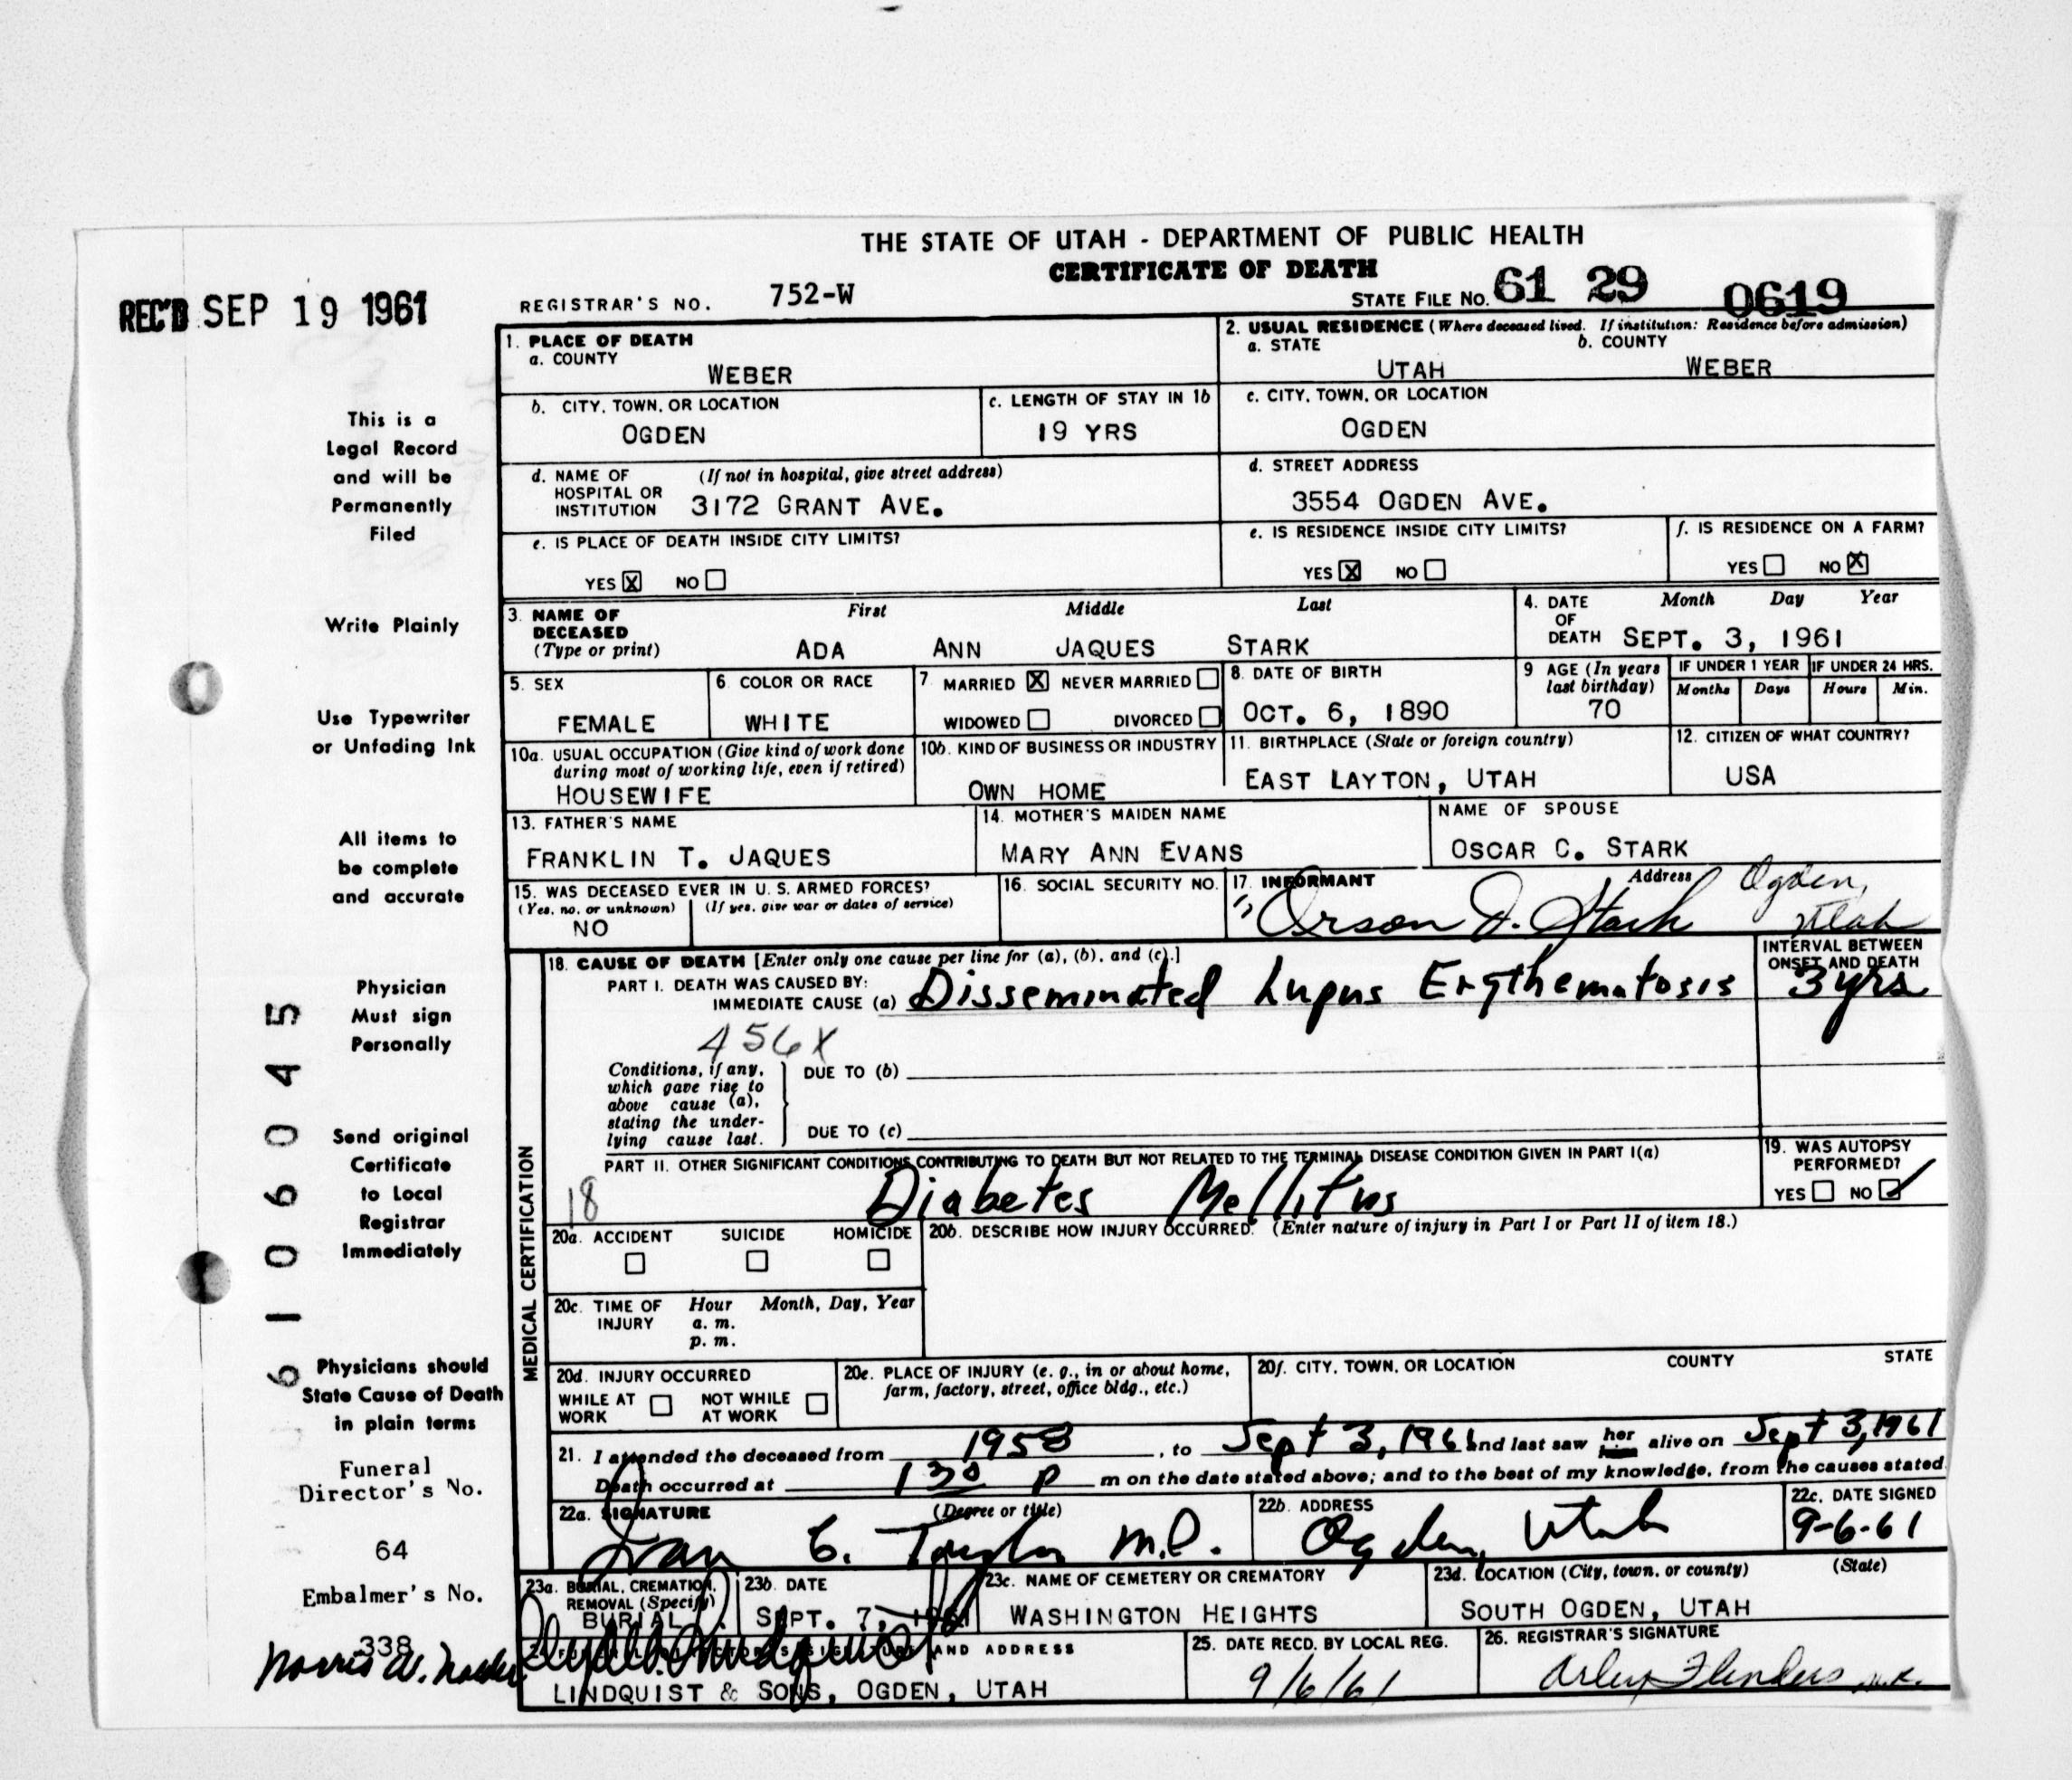 THE STATE OF UTAH - DEPARTMENT OF PUBLIC HEALTH
CERTIFICATE OF DEATH
REC'D SEP 19 1961
REGISTRAR'S NO. 752-W
STATE FILE NO. 61 29 0619
1. PLACE OF DEATH
a. COUNTY
WEBER
2. USUAL RESIDENCE (Where deceased lived. If institution: Residence before admission)
a. STATE b. COUNTY
UTAH WEBER
b. CITY, TOWN, OR LOCATION
OGDEN
c. LENGTH OF STAY IN 1b
19 YRS
c. CITY, TOWN, OR LOCATION
OGDEN
d. NAME OF (If not in hospital, give street address)
HOSPITAL OR
INSTITUTION 3172 GRANT AVE.
d. STREET ADDRESS
3554 OGDEN AVE.
e. IS PLACE OF DEATH INSIDE CITY LIMITS?
YES X NO
e. IS RESIDENCE INSIDE CITY LIMITS?
YES X NO
f. IS RESIDENCE ON A FARM?
YES NO X
3. NAME OF
DECEASED
(Type or print)
First Middle Last
ADA ANN JAQUES STARK
4. DATE
OF
DEATH
Month Day Year
SEPT. 3, 1961
5. SEX
FEMALE
6. COLOR OR RACE
WHITE
7. MARRIED X NEVER MARRIED
WIDOWED DIVORCED
8. DATE OF BIRTH
OCT. 6, 1890
9 AGE (In years
last birthday)
70
IF UNDER 1 YEAR IF UNDER 24 HRS.
Months Days Hours Min.
10a. USUAL OCCUPATION (Give kind of work done
during most of working life, even if retired)
HOUSEWIFE
10b. KIND OF BUSINESS OR INDUSTRY
OWN HOME
11. BIRTHPLACE (State or foreign country)
EAST LAYTON, UTAH
12. CITIZEN OF WHAT COUNTRY?
USA
13. FATHER'S NAME
FRANKLIN T. JAQUES
14. MOTHER'S MAIDEN NAME
MARY ANN EVANS
NAME OF SPOUSE
OSCAR C. STARK
15. WAS DECEASED EVER IN U. S. ARMED FORCES?
(Yes, no, or unknown) (If yes, give war or dates of service)
NO
16. SOCIAL SECURITY NO.
17. INFORMANT Address
Orson J. Stark Ogden,
Utah
MEDICAL CERTIFICATION
18. CAUSE OF DEATH [Enter only one cause per line for (a), (b), and (c).]
PART I. DEATH WAS CAUSED BY:
IMMEDIATE CAUSE (a) Disseminated Lupus Erythematosis
INTERVAL BETWEEN
ONSET AND DEATH
3 yrs
456X
Conditions, if any,
which gave rise to
above cause (a),
stating the under-
lying cause last.
DUE TO (b)
DUE TO (c)
PART II. OTHER SIGNIFICANT CONDITIONS CONTRIBUTING TO DEATH BUT NOT RELATED TO THE TERMINAL DISEASE CONDITION GIVEN IN PART I(a)
18 Diabetes Mellitus
19. WAS AUTOPSY
PERFORMED?
YES NO ✓
20a. ACCIDENT SUICIDE HOMICIDE
20b. DESCRIBE HOW INJURY OCCURRED. (Enter nature of injury in Part I or Part II of item 18.)
20c. TIME OF Hour Month, Day, Year
INJURY a. m.
p. m.
20d. INJURY OCCURRED
WHILE AT
WORK
NOT WHILE
AT WORK
20e. PLACE OF INJURY (e. g., in or about home,
farm, factory, street, office bldg., etc.)
20f. CITY, TOWN, OR LOCATION COUNTY STATE
21. I attended the deceased from 1958, to Sept 3, 1961 and last saw her him alive on Sept 3, 1961
Death occurred at 1 30 p m on the date stated above; and to the best of my knowledge, from the causes stated
22a. SIGNATURE (Degree or title)
Ivan C. Taylor M.D.
22b. ADDRESS
Ogden, Utah
22c. DATE SIGNED
9-6-61
23a. BURIAL, CREMATION,
REMOVAL (Specify)
BURIAL
23b. DATE
SEPT. 7, 1961
23c. NAME OF CEMETERY OR CREMATORY
WASHINGTON HEIGHTS
23d. LOCATION (City, town, or county) (State)
SOUTH OGDEN, UTAH
AND ADDRESS
LINDQUIST & SONS, OGDEN, UTAH
25. DATE RECD. BY LOCAL REG.
9/6/61
26. REGISTRAR'S SIGNATURE
Flinders
This is a
Legal Record
and will be
Permanently
Filed
Write Plainly
Use Typewriter
or Unfading Ink
All items to
be complete
and accurate
Physician
Must sign
Personally
Send original
Certificate
to Local
Registrar
Immediately
Physicians should
State Cause of Death
in plain terms
Funeral
Director's No.
64
Embalmer's No.
338
Norris W.
61 06045